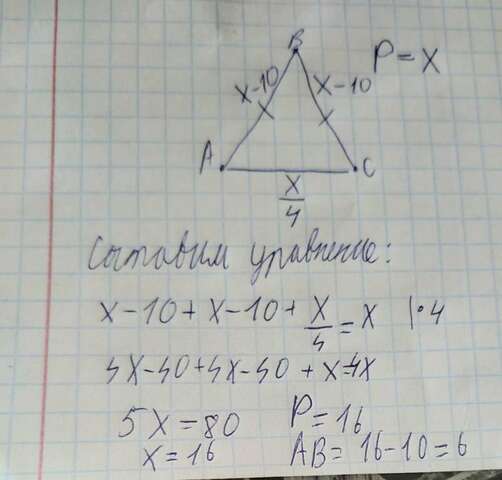 B
x-10 x-10 P=x
A C
x/4
Составим уравнение:
x-10+x-10+x/4=x |·4
4x-40+4x-40+x=4x
5x=80 P=16
x=16 AB=16-10=6